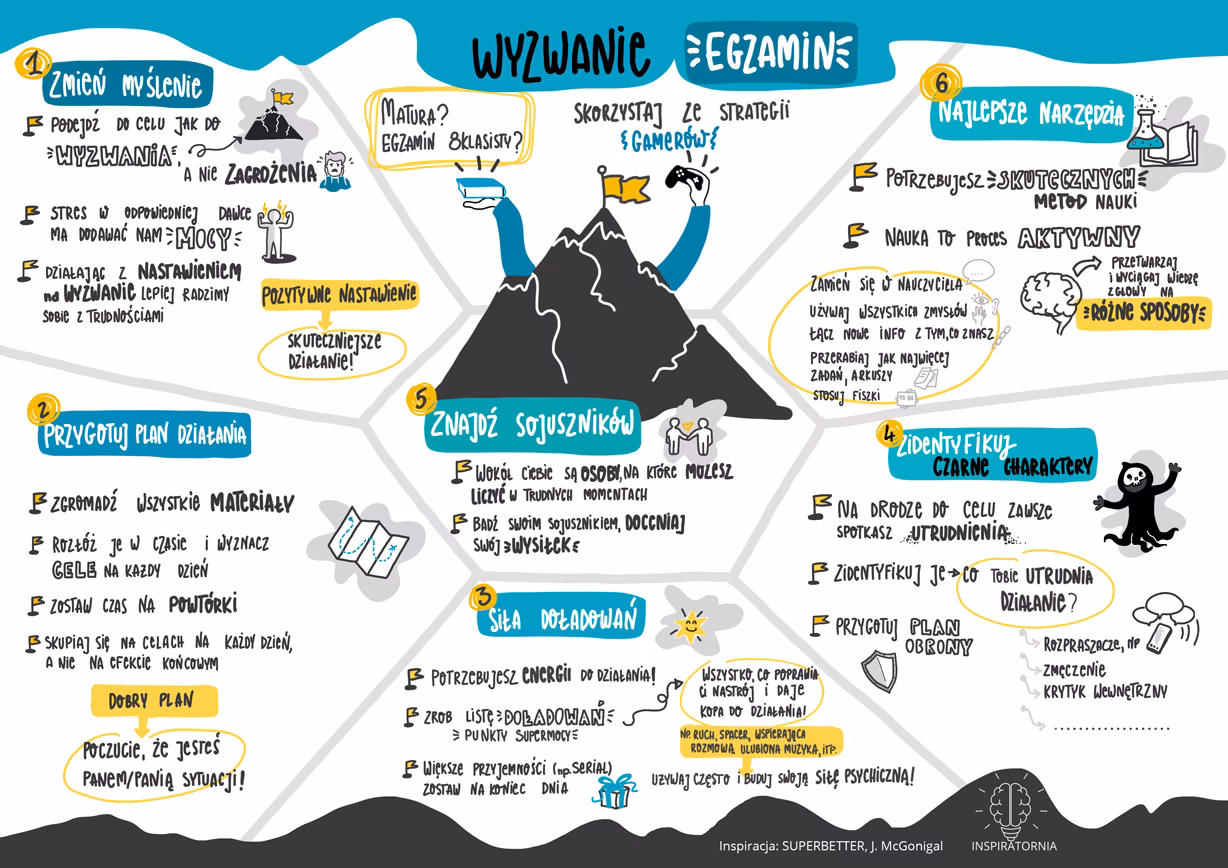 WYZWANIE EGZAMIN
MATURA?
EGZAMIN 8KLASISTY?
SKORZYSTAJ ZE STRATEGII
GAMERÓW
1
ZMIEŃ MYŚLENIE
PODEJDŹ DO CELU JAK DO
WYZWANIA,
A NIE ZAGROŻENIA
STRES W ODPOWIEDNIEJ DAWCE
MA DODAWAĆ NAM MOCY
DZIAŁAJĄC Z NASTAWIENIEM
na WYZWANIE LEPIEJ RADZIMY
SOBIE Z TRUDNOŚCIAMI
POZYTYWNE NASTAWIENIE
SKUTECZNIEJSZE
DZIAŁANIE!
2
PRZYGOTUJ PLAN DZIAŁANIA
ZGROMADŹ WSZYSTKIE MATERIAŁY
ROZŁÓŻ JE W CZASIE I WYZNACZ
CELE NA KAŻDY DZIEŃ
ZOSTAW CZAS NA POWTÓRKI
SKUPIAJ SIĘ NA CELACH NA KAŻDY DZIEŃ,
A NIE NA EFEKCIE KOŃCOWYM
DOBRY PLAN
POCZUCIE, ŻE JESTEŚ
PANEM/PANIĄ SYTUACJI!
3
SIŁA DOŁADOWAŃ
POTRZEBUJESZ ENERGII DO DZIAŁANIA!
ZRÓB LISTĘ DOŁADOWAŃ
PUNKTY SUPERMOCY
WIĘKSZE PRZYJEMNOŚCI (np. SERIAL)
ZOSTAW NA KONIEC DNIA
WSZYSTKO, CO POPRAWIA
CI NASTRÓJ I DAJE
KOPA DO DZIAŁANIA!
NP. RUCH, SPACER, WSPIERAJĄCA
ROZMOWA, ULUBIONA MUZYKA, ITP.
UŻYWAJ CZĘSTO I BUDUJ SWOJĄ SIŁĘ PSYCHICZNĄ!
4
ZIDENTYFIKUJ
CZARNE CHARAKTERY
NA DRODZE DO CELU ZAWSZE
SPOTKASZ UTRUDNIENIA
ZIDENTYFIKUJ JE → CO TOBIE UTRUDNIA
DZIAŁANIE?
PRZYGOTUJ PLAN
OBRONY
ROZPRASZACZE, np
ZMĘCZENIE
KRYTYK WEWNĘTRZNY
....................
5
ZNAJDŹ SOJUSZNIKÓW
WOKÓŁ CIEBIE SĄ OSOBY, NA KTÓRE MOŻESZ
LICZYĆ W TRUDNYCH MOMENTACH
BĄDŹ SWOIM SOJUSZNIKIEM, DOCENIAJ
SWÓJ WYSIŁEK
6
NAJLEPSZE NARZĘDZIA
POTRZEBUJESZ SKUTECZNYCH
METOD NAUKI
NAUKA TO PROCES AKTYWNY
PRZETWARZAJ
I WYCIĄGAJ WIEDZĘ
Z GŁOWY NA
RÓŻNE SPOSOBY
ZAMIEŃ SIĘ W NAUCZYCIELA
UŻYWAJ WSZYSTKICH ZMYSŁÓW
ŁĄCZ NOWE INFO Z TYM, CO ZNASZ
PRZERABIAJ JAK NAJWIĘCEJ
ZADAŃ, ARKUSZY
STOSUJ FISZKI
TO BE
Inspiracja: SUPERBETTER, J. McGonigal
INSPIRATORNIA